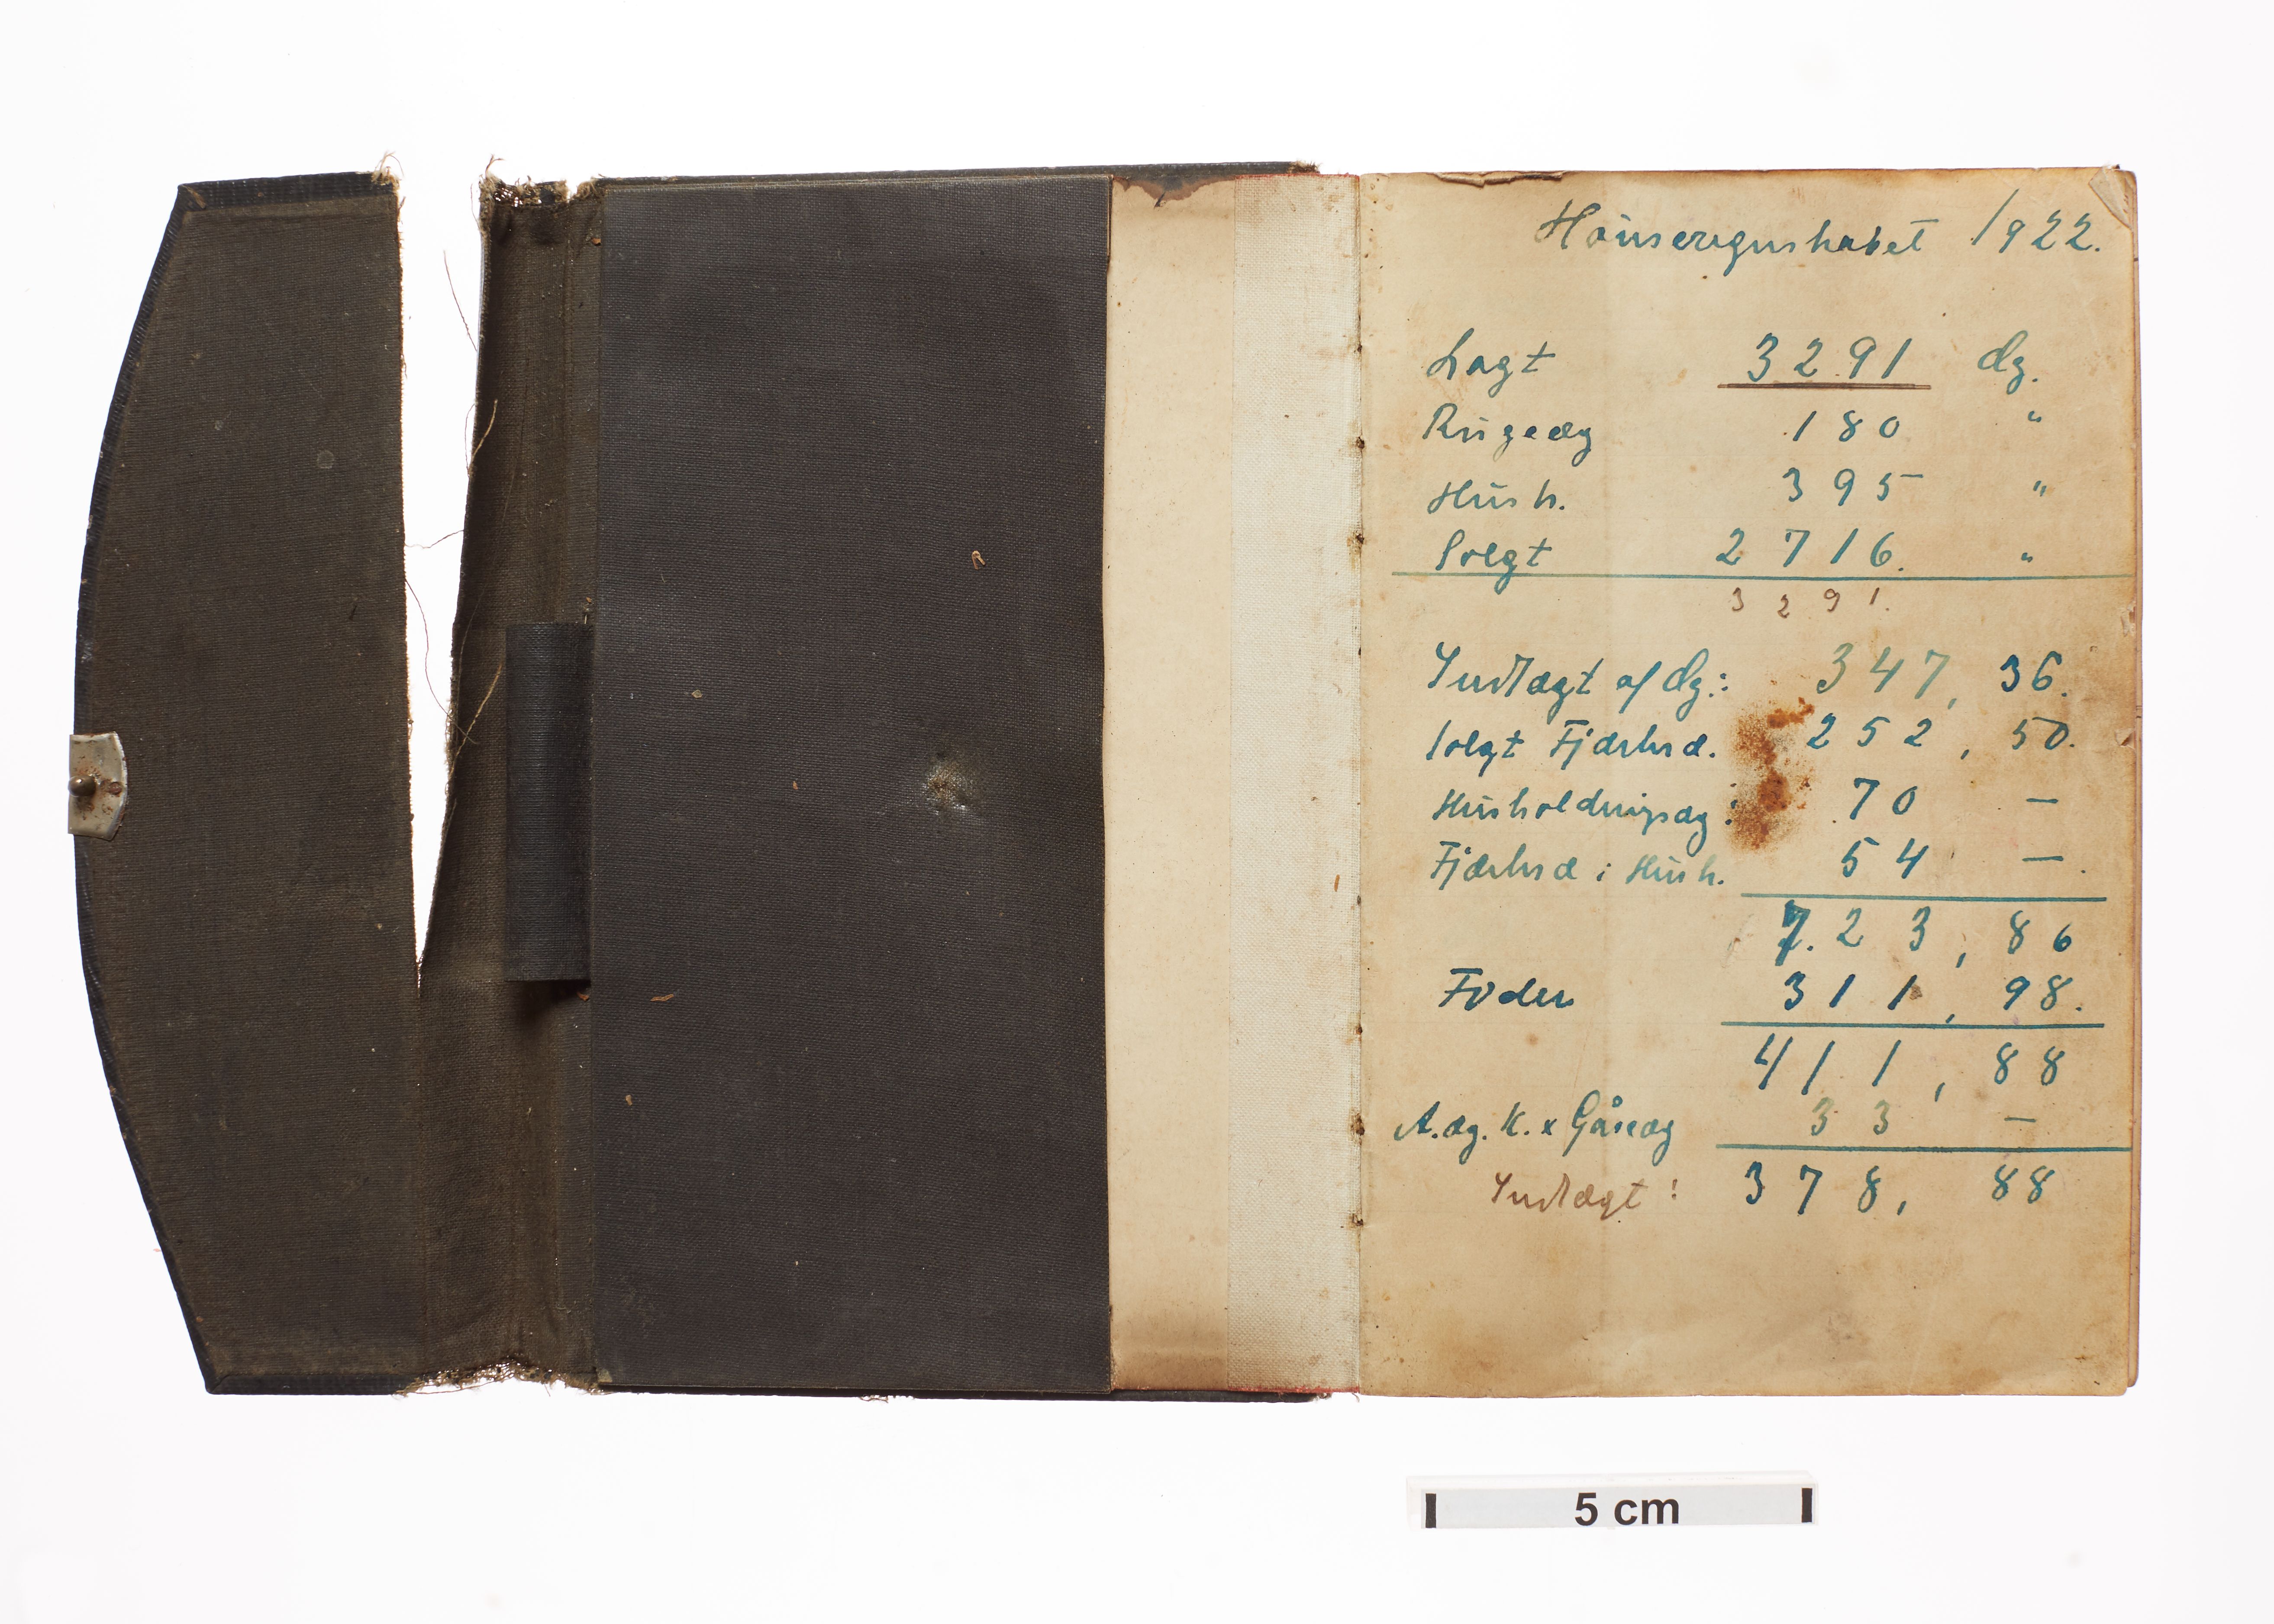 Hönseregnskabet 1922.
Lagt 3291 Æg.
Rugeæg 180 "
Hush. 395 "
Solgt 2716. "
3291.
Indtægt af Æg.: 347, 36.
Solgt Fjærkræ. 252, 50.
Husholdningsæg: 70 —
Fjærkræ i Hush. 54 —.
723, 86
Foder 311, 98.
411, 88
A.æg. K. x Gåseæg 33 —
Indtægt: 378, 88
5 cm